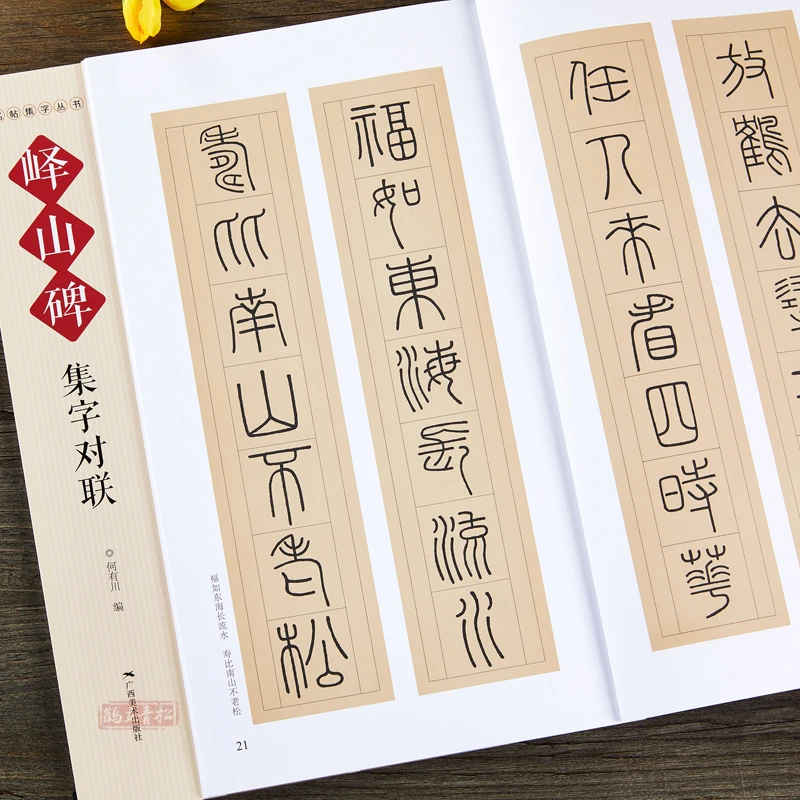 帖集字丛书
峄山碑
集字对联
何有川 编
广西美术出版社
福如東海長流水
壽比南山不老松
福如东海长流水 寿比南山不老松
21
任人來看四時華
放鶴去